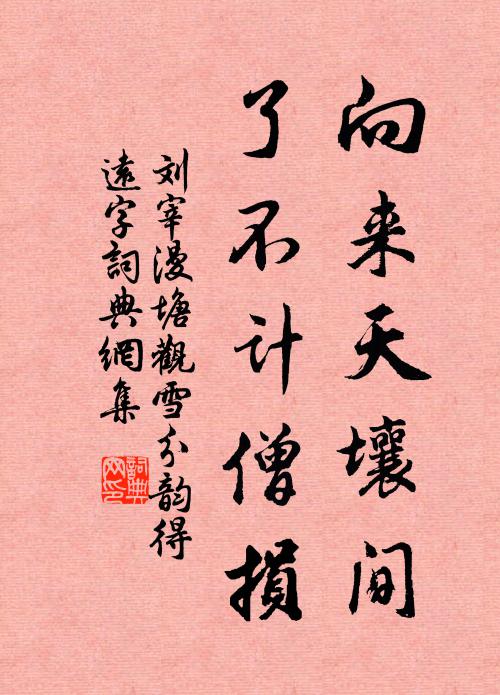 向来天壤间
了不计僧損
刘宰漫塘觀雪分韵得
遠字詞典網集
詞典
网印